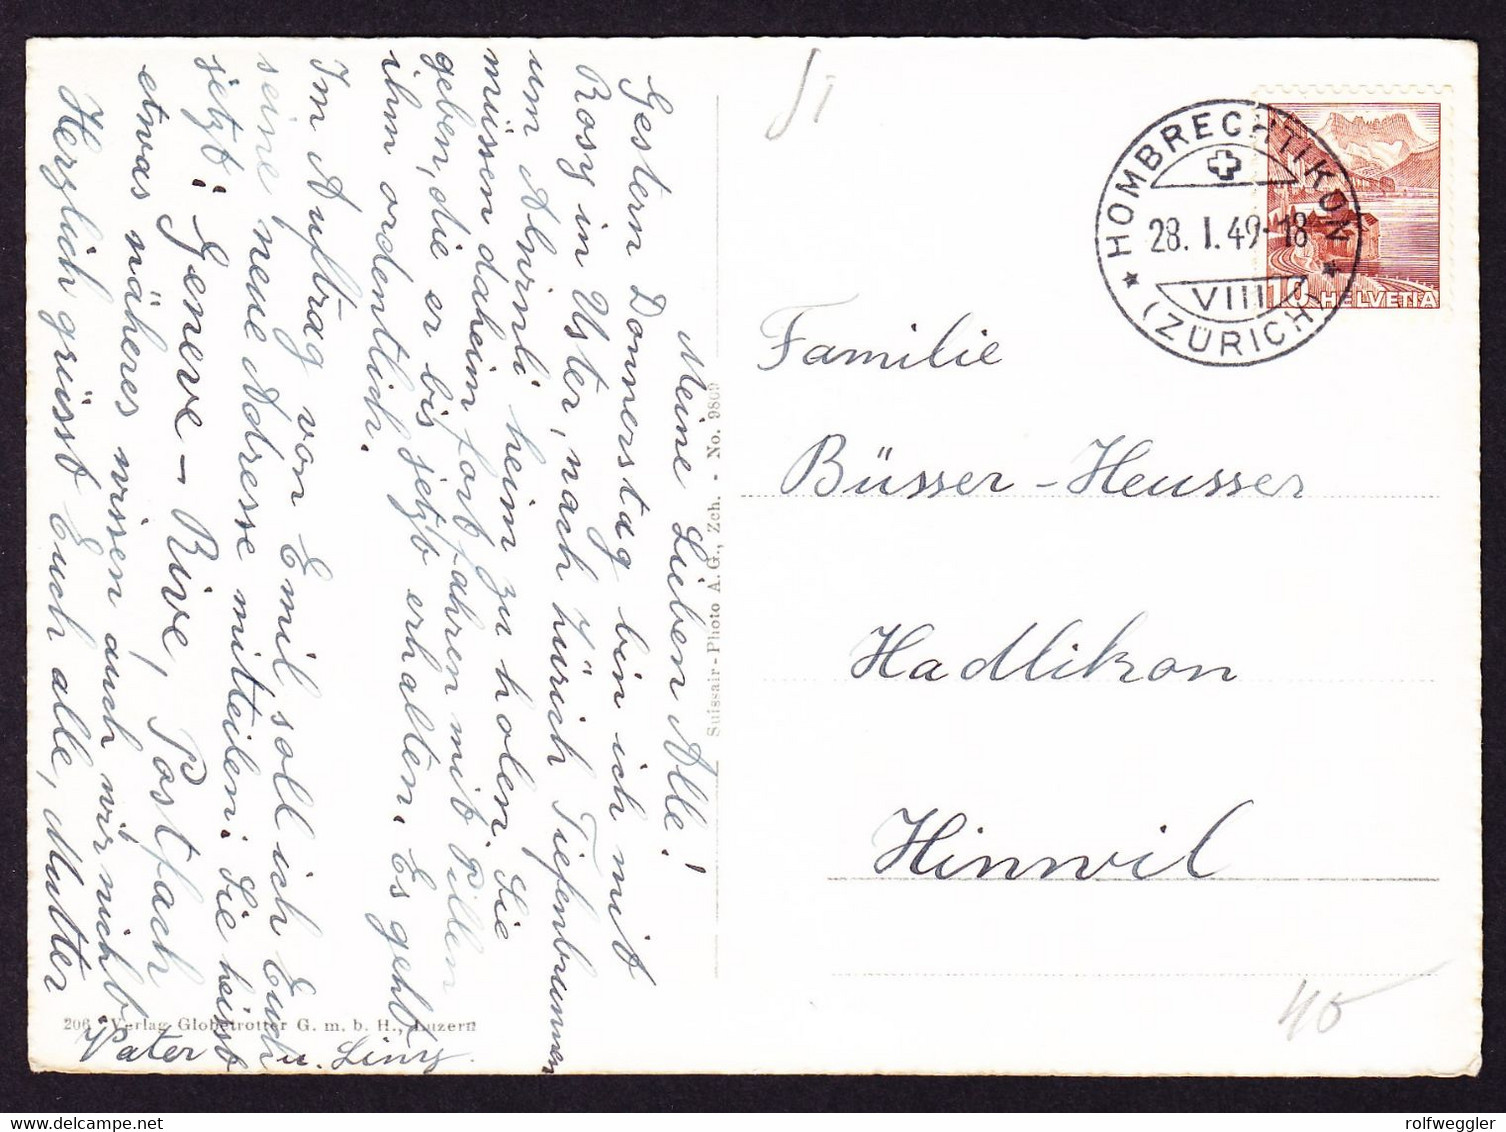 Meine Lieben Alle!
Gestern Donnerstag bin ich mit
Rosy in Uster, nach Zürich Tiefenbrunnen
um Alwinli heim zu holen. Sie
müssen daheim fortfahren mit Pillen
geben, die er bis jetzt erhalten. Es geht
ihm ordentlich.
Im Auftrag von Emil soll ich Euch
seine neue Adresse mitteilen. Sie heisst
jetzt: Geneve – Rive, Postfach
etwas näheres wissen auch wir nicht
Herzlich grüsst Euch alle, Mutter
Vater u. Liny.
206 Verlag Globetrotter G. m. b. H., Luzern
Suissair-Photo A.G., Zch. - No. 9809
HOMBRECHTIKON
28. I. 49-18
VIII
(ZÜRICH)
10 HELVETIA
Familie
Büsser-Heusser
Hadlikon
Hinwil
rolfweggler